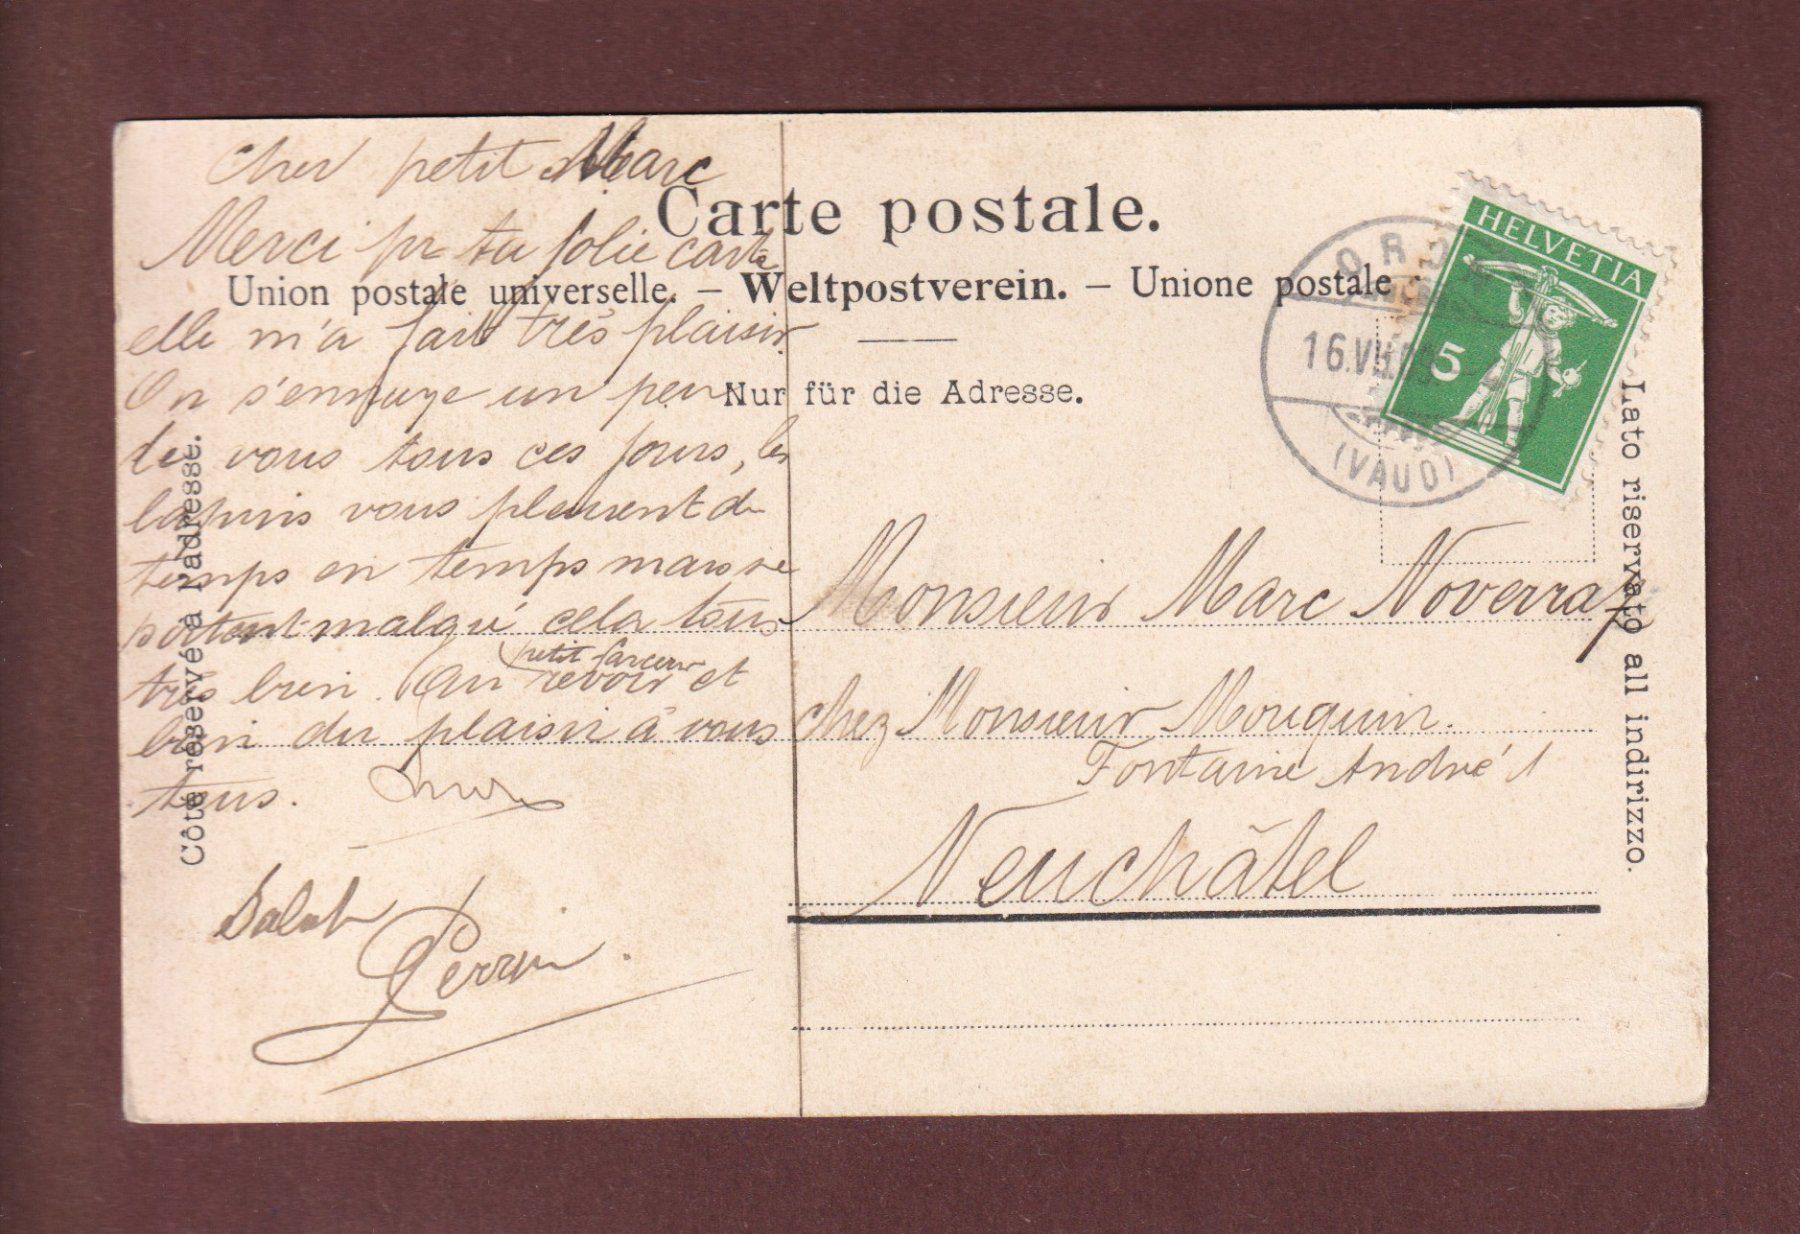 Cher petit Marc
Merci pr ta jolie carte
elle m'a fait très plaisir
On s'ennuye un peu
de vous tous ces jours, les
lapins vous pleurent de
temps en temps mais se
portent malgré cela tous
très bien. Au revoir petit farceur et
bien du plaisir à vous
tous.
Salut
Perrin.
Carte postale.
Union postale universelle. – Weltpostverein. – Unione postale
Nur für die Adresse.
Côté réservé à l'adresse.
Lato riservato all indirizzo.
HELVETIA
5
16.VII
(VAUD)
Monsieur Marc Noverraz
chez Monsieur Mouquin.
Fontaine André 1
Neuchâtel